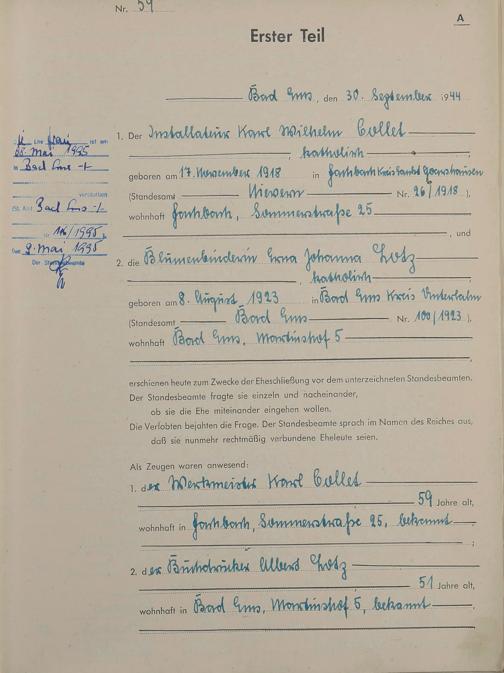 Nr. 59
A
Erster Teil
Bad Ems, den 30. September 1944
1. Der Installateur Karl Wilhelm Collet
, katholisch
geboren am 17. November 1918 in Fachbach Kreis Sankt Goarshausen
(Standesamt Nievern Nr. 26/1918),
wohnhaft Fachbach, Sommerstraße 25
, und
2. die Blumenbinderin Erna Johanna Lotz
, katholisch
geboren am 8. August 1923 in Bad Ems Kreis Unterlahn
(Standesamt Bad Ems Nr. 100/1923),
wohnhaft Bad Ems, Martinshof 5
erschienen heute zum Zwecke der Eheschließung vor dem unterzeichneten Standesbeamten.
Der Standesbeamte fragte sie einzeln und nacheinander,
ob sie die Ehe miteinander eingehen wollen.
Die Verlobten bejahten die Frage. Der Standesbeamte sprach im Namen des Reiches aus,
daß sie nunmehr rechtmäßig verbundene Eheleute seien.
Als Zeugen waren anwesend:
1. der Werkmeister Karl Collet
59 Jahre alt,
wohnhaft in Fachbach, Sommerstraße 25, bekannt
;
2. der Buchdrucker Albert Lotz
51 Jahre alt,
wohnhaft in Bad Ems, Martinshof 5, bekannt
Ehefrau ist am
Mai 1995
in Bad Ems
verstorben
Bad Ems
/1995
Den 9. Mai 1995
Der Standesbeamte